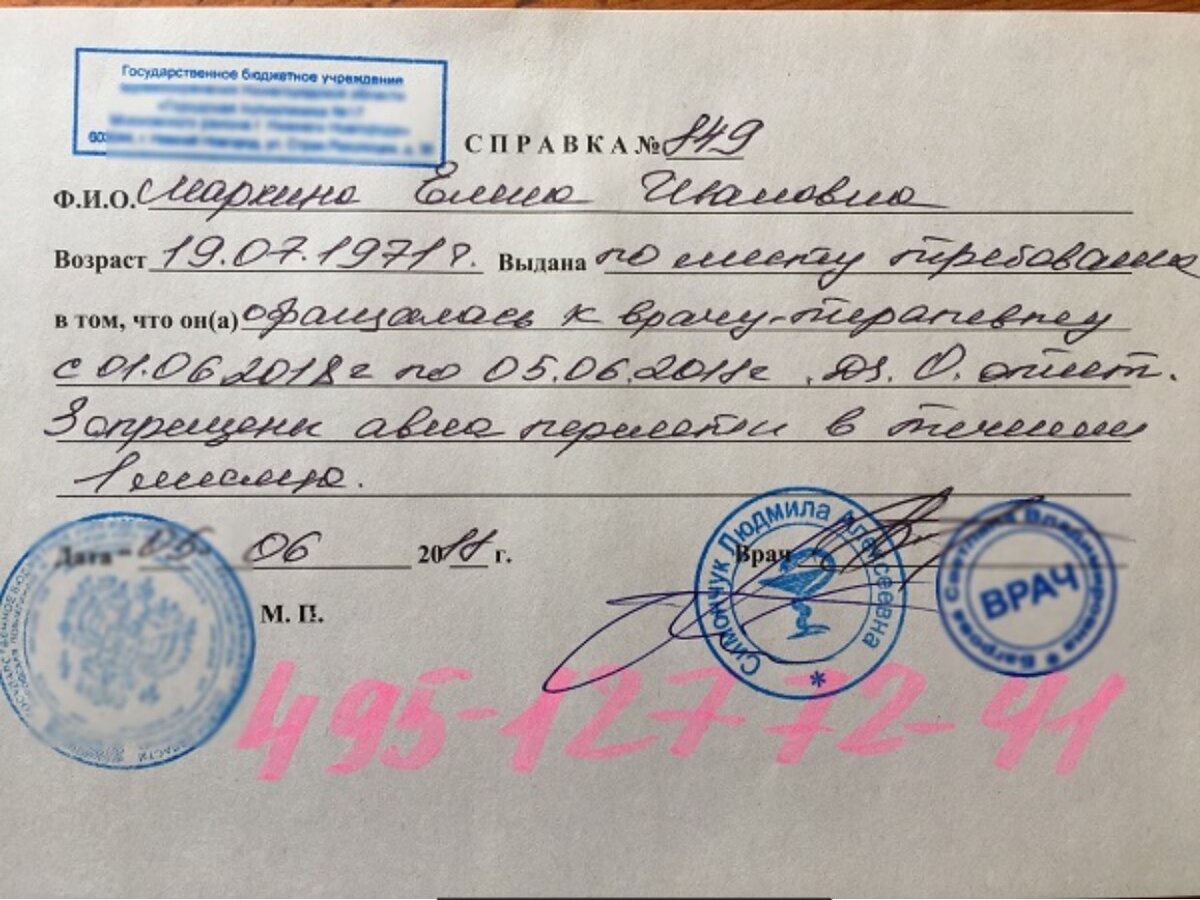 Государственное бюджетное учреждение
СПРАВКА № 849
Ф.И.О. Маркина Елена Ивановна
Возраст 19.07.1971 г. Выдана по месту требования
в том, что он(а) обращалась к врачу-терапевту
с 01.06.2018 г по 05.06.2018 г. Дз. О. отит.
Запрещены авиа перелеты в течении
1 месяца.
Дата 05 06 2018 г. Врач
М. П.
Симончук Людмила Алексеевна
ВРАЧ
495-127 72-41